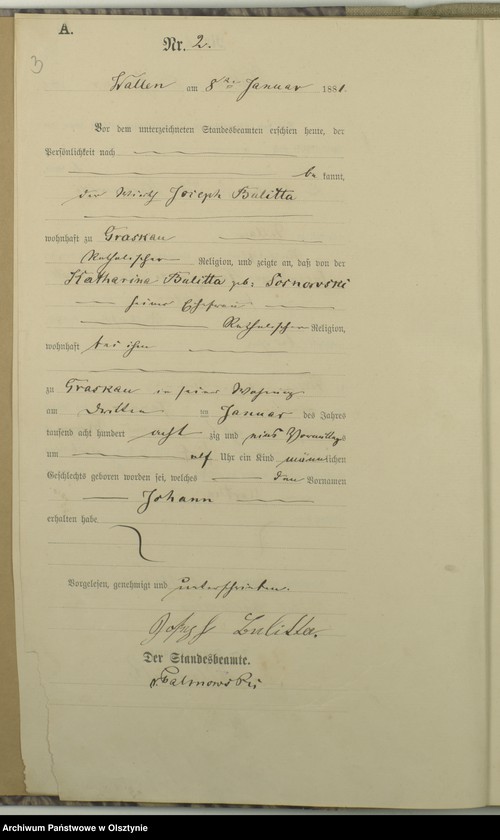 A.
Nr. 2.
3
Wallen am 8ten Januar 1881.
Vor dem unterzeichneten Standesbeamten erschien heute, der
Persönlichkeit nach
be kannt,
der Wirth Joseph Bulitta
wohnhaft zu Graskau
Katholischer Religion, und zeigte an, daß von der
Katharina Bulitta geb. Sosnowski
seiner Ehefrau
Katholischer Religion,
wohnhaft bei ihm
zu Graskau in seiner Wohnung
am dritten Januar des Jahres
tausend acht hundert acht zig und eins Vormittags
um elf Uhr ein Kind männlichen
Geschlechts geboren worden sei, welches den Vornamen
Johann
erhalten habe.
Vorgelesen, genehmigt und unterschrieben.
Josef Bulitta.
Der Standesbeamte.
v. Palmowski
Archiwum Państwowe w Olsztynie